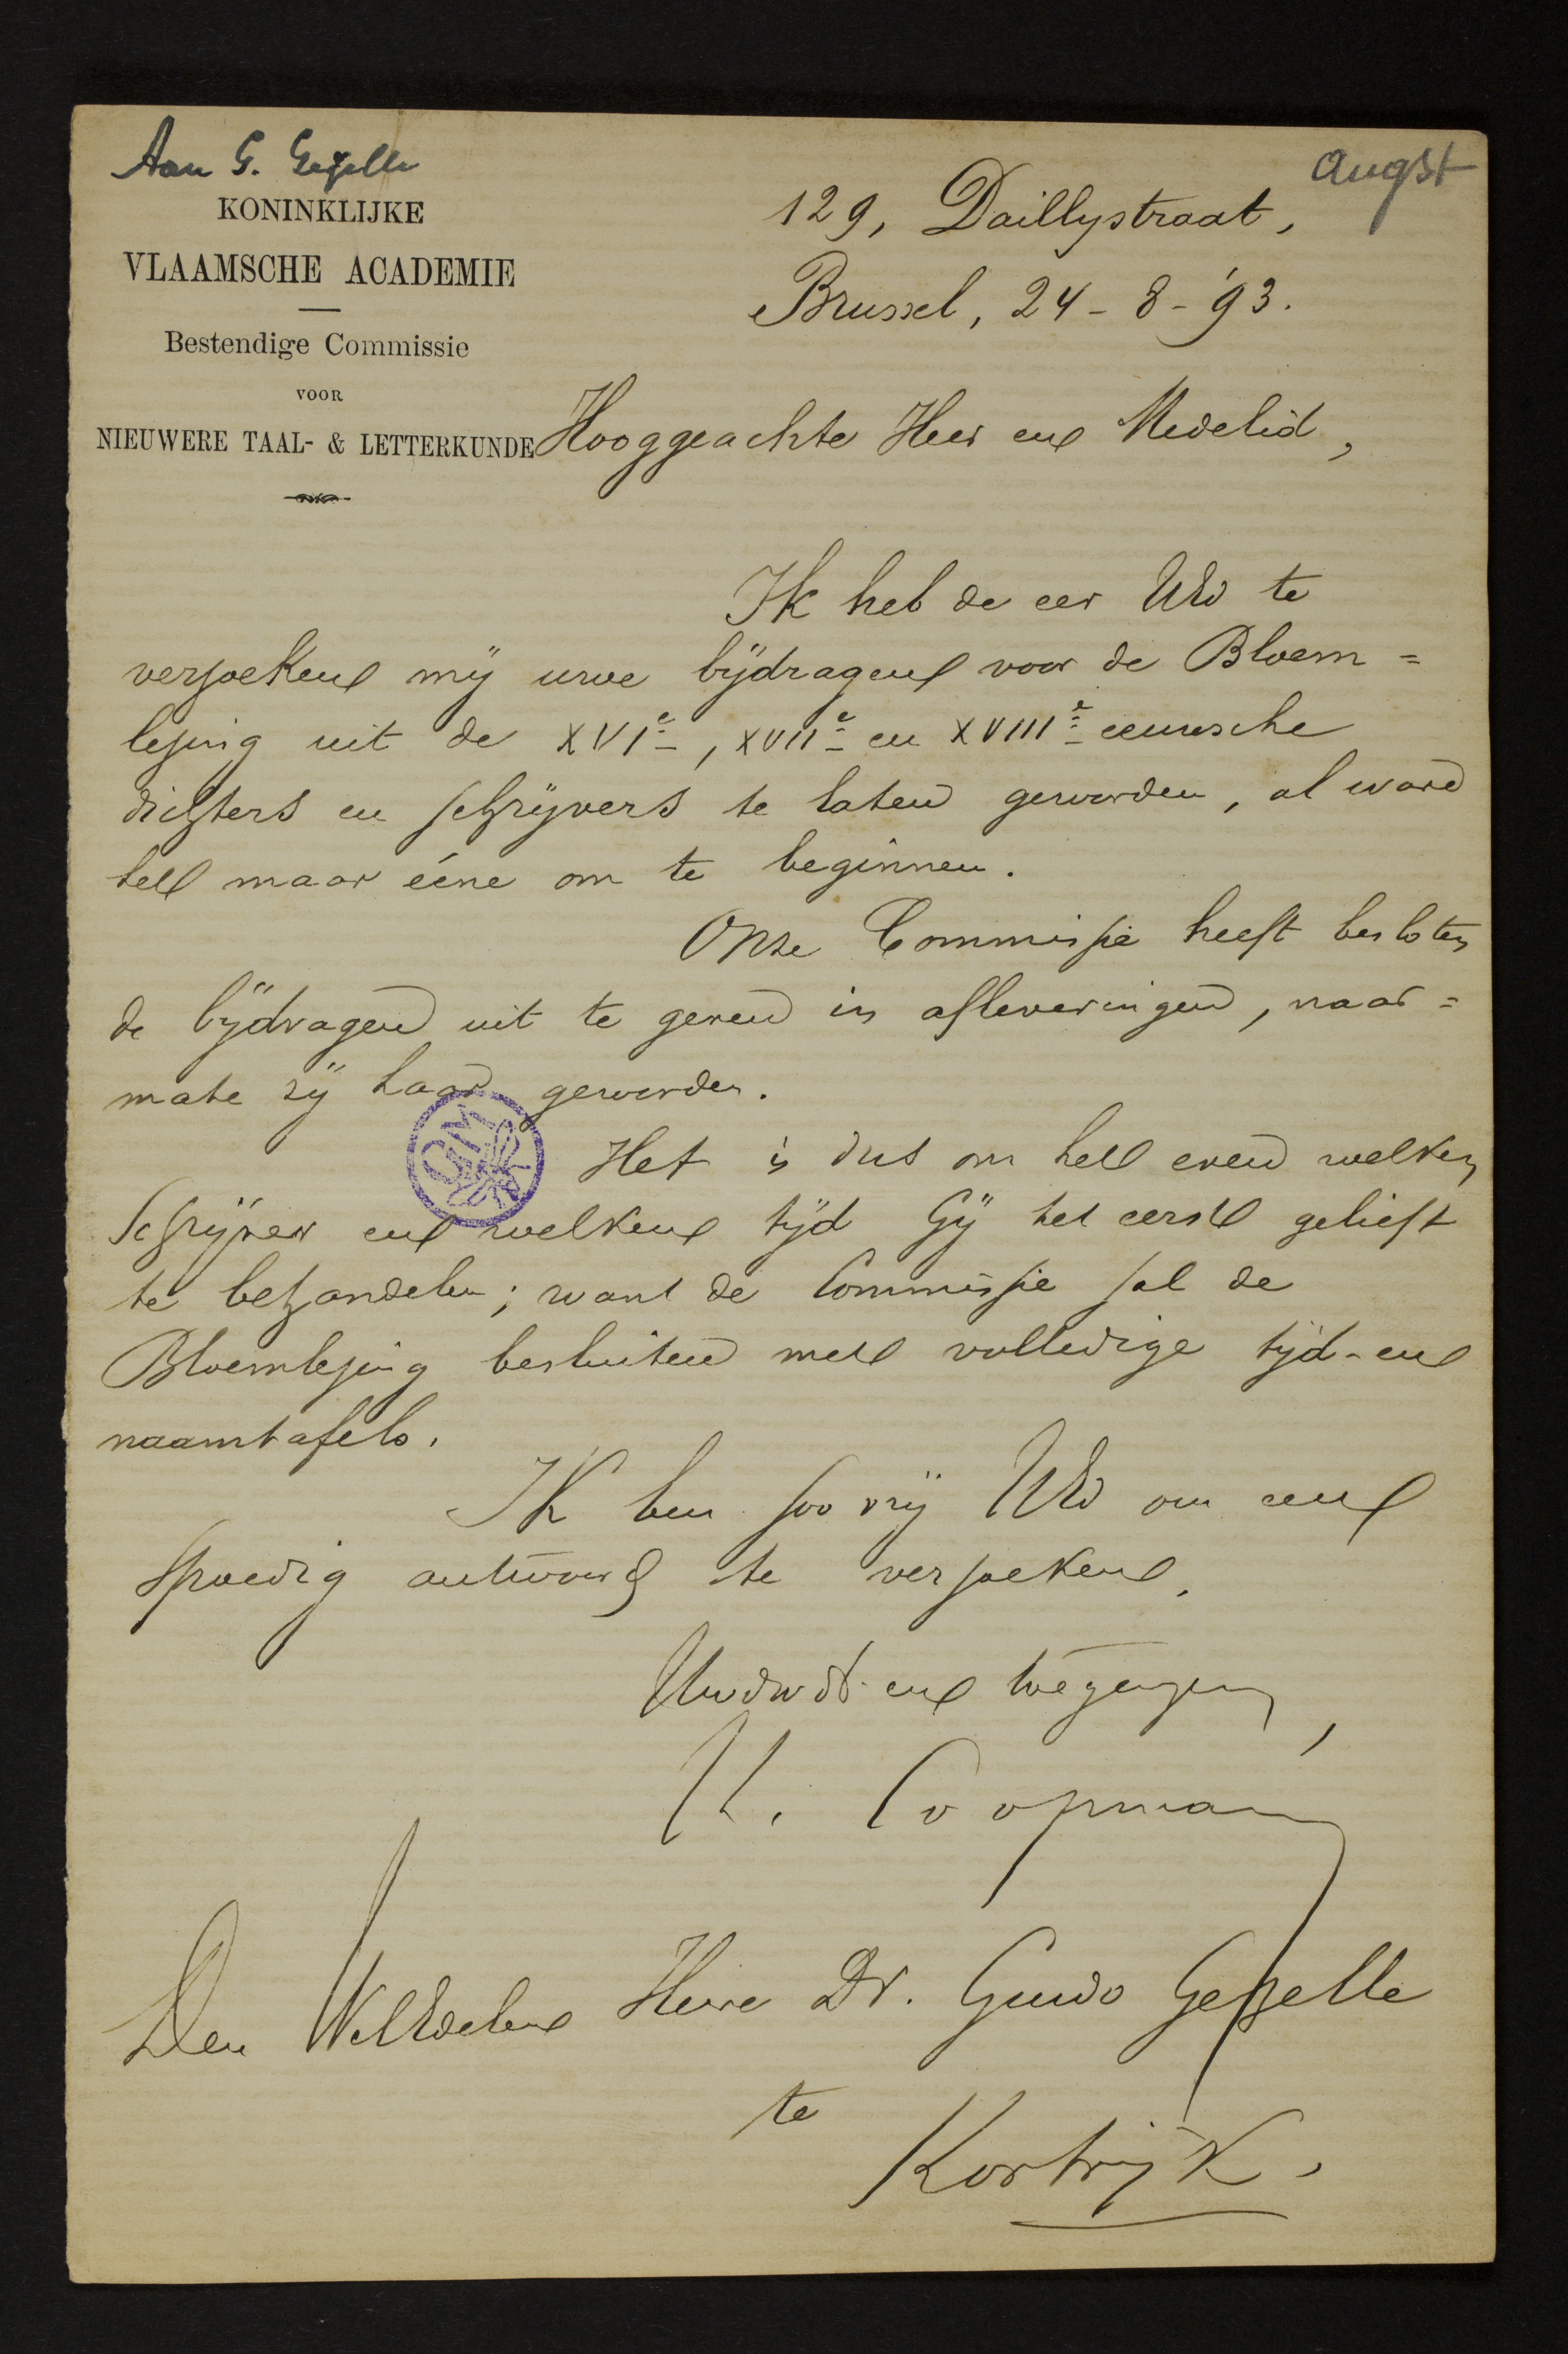 Aan G. Gezelle
augst
KONINKLIJKE
VLAAMSCHE ACADEMIE
Bestendige Commissie
VOOR
NIEUWERE TAAL- & LETTERKUNDE
129, Daillystraat,
Brussel, 24-8-'93.
Hooggeachte Heer en Medelid,
Ik heb de eer UEd te
verzoeken mij uwe bijdragen voor de Bloem=
lezing uit de XVIe, XVIIe en XVIIIe eeuwsche
dichters en schrijvers te laten geworden, al ware
het maar ééne om te beginnen.
Onze Commissie heeft besloten
de bijdragen uit te geven in afleveringen, naar=
mate zij haar geworden.
Het is dus om het even welken
schrijver en welken tijd Gij het eerst gelieft
te behandelen; want de Commissie zal de
Bloemlezing besluiten met volledige tijd- en
naamtafels.
Ik ben zoo vrij UEd om een
spoedig antwoord te verzoeken.
Uwdw dr en toegenegen,
K. Coopman
Den WelEdelen Heere Dr. Guido Gezelle
te
Kortrijk.